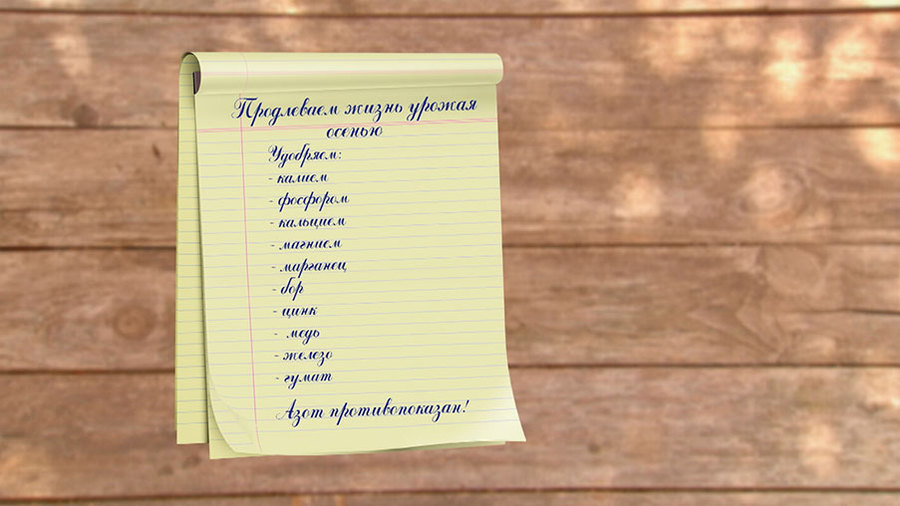 Продлеваем жизнь урожая
осенью
Удобряем:
- калием
- фосфором
- кальцием
- магнием
- марганец
- бор
- цинк
- медь
- железо
- гумат
Азот противопоказан!